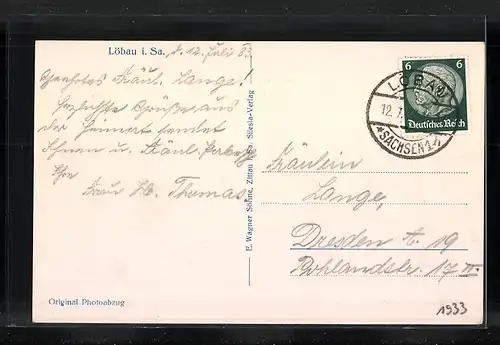 Löbau i. Sa., d. 12. Juli 33
Geehrtes Fräul. Lange!
Herzlichste Grüße aus
der Heimat sendet
Ihnen u. Fräul.
Ihre
Frau H. Thomas.
Original Photoabzug
E. Wagner Söhne, Zittau i. Sa. Silesia-Verlag
6 6
Deutsches Reich
LÖBAU
12.7.
*SACHSEN 1*
Fräulein
Lange,
Dresden A. 19
Pohlandstr. 17 II
1933